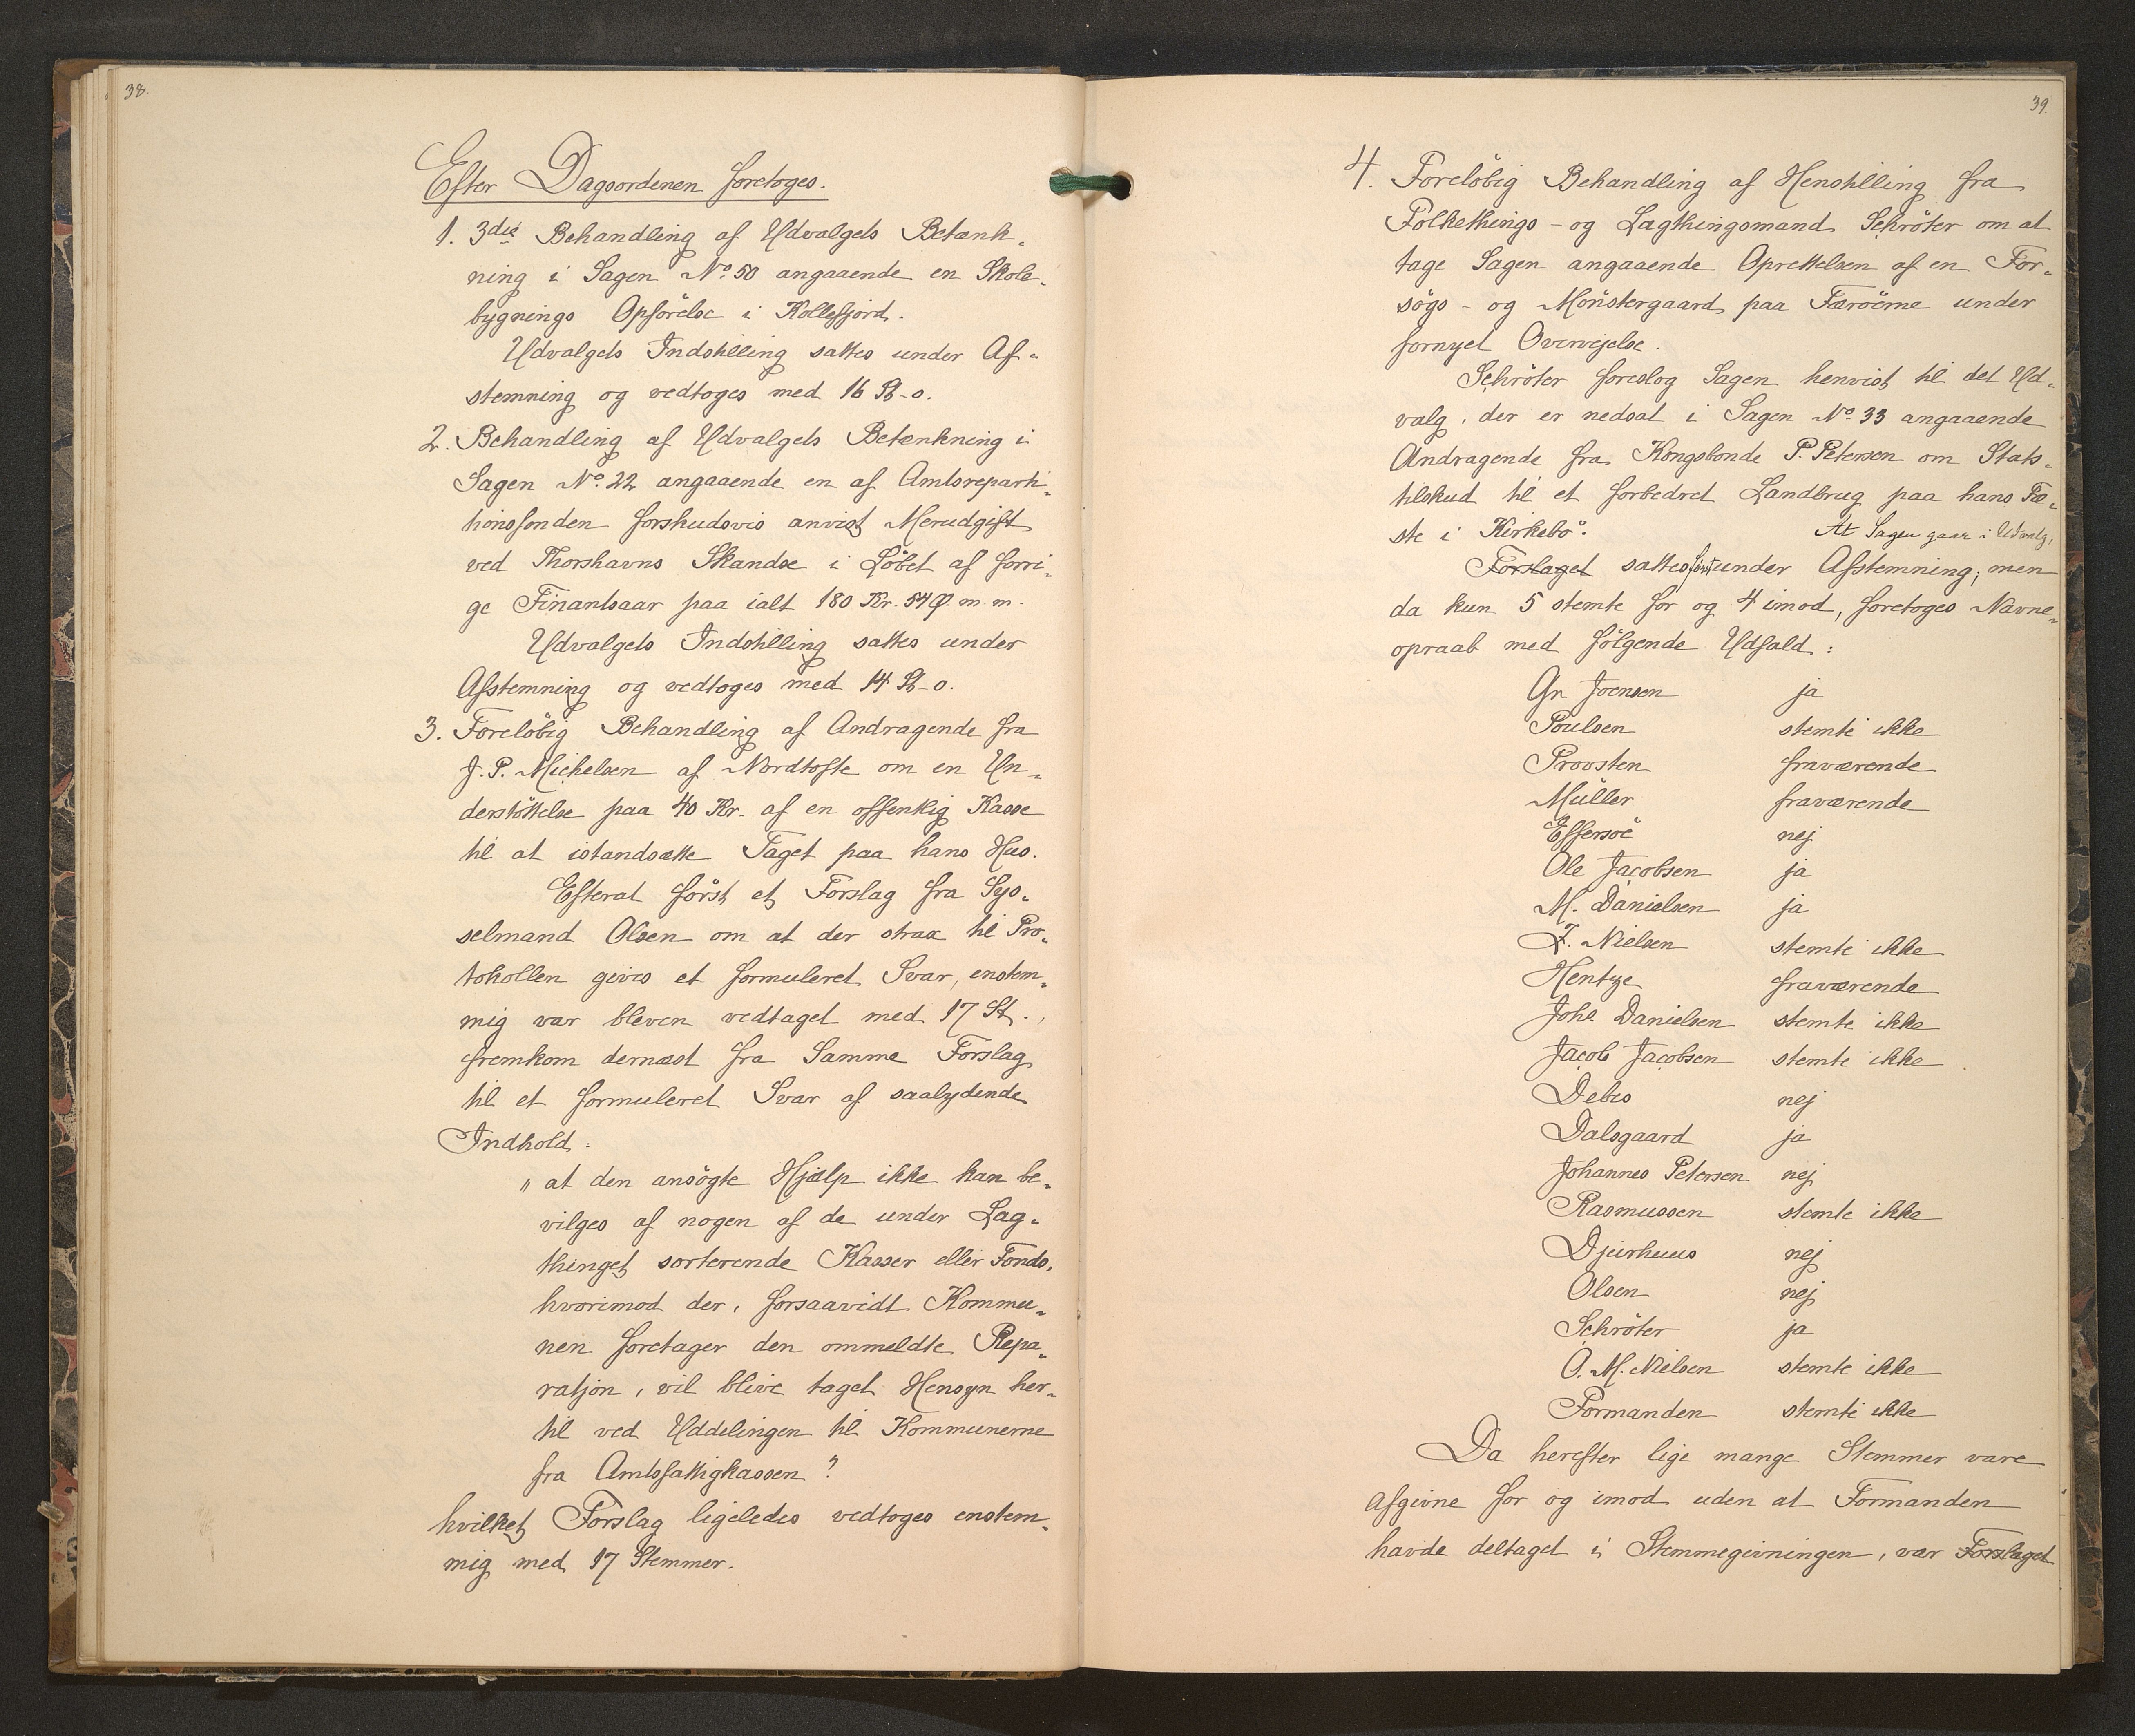 38.
Efter Dagsordenen foretoges.
1. 3die Behandling af Udvalgets Betænk-
ning i Sagen No. 50 angaaende en Skole-
bygnings Opförelse i Kollefjord.
Udvalgets Indstilling sattes under Af-
stemning og vedtoges med 16 St-0.
2. Behandling af Udvalgets Betænkning i
Sagen No. 22 angaaende en af Amtsreparti-
tionsfonden forskudsvis anvist Merudgift
ved Thorshavns Skandse i Löbet af forri-
ge Finantsaar paa ialt 180 Kr. 54 Ø. m. m.
Udvalgets Indstilling sattes under
Afstemning og vedtoges med 14 St-0.
3. Forelöbig Behandling af Andragende fra
J. P. Michelsen af Nordtofte om en Un-
derstöttelse paa 40 Kr. af en offentlig Kasse
til at istandsætte Taget paa hans Hus.
Efterat först et Forslag fra Sys-
selmand Olsen om at der strax til Pro-
tokollen gives et formuleret Svar, enstem-
mig var bleven vedtaget med 17 St.,
fremkom dernæst fra Samme Forslag
til et formuleret Svar af saalydende
Indhold:
"at den ansögte Hjælp ikke kan be-
vilges af nogen af de under Lag-
thinget sorterende Kasser eller Fonds,
hvorimod der, forsaavidt Kommu-
nen foretager den ommeldte Repa-
ratjon, vil blive taget Hensyn her-
til ved Uddelingen til Kommunerne
fra Amtsfattigkassen"
hvilket Forslag ligeledes vedtoges enstem-
mig med 17 Stemmer.
39.
4. Forelöbig Behandling af Henstilling fra
Folkethings- og Lagthingsmand Schröter om at
tage Sagen angaaende Oprettelsen af en For-
sögs- og Mönstergaard paa Færöerne under
fornyet Overvejelse.
Schröter foreslog Sagen henvist til det Ud-
valg, der er nedsat i Sagen No. 33 angaaende
Andragende fra Kongsbonde P. Petersen om Stats-
tilskud til et forbedret Landbrug paa hans Fæ-
ste i Kirkebö.
At Sagen gaar i Udvalg,
Forslaget sattes först under Afstemning; men
da kun 5 stemte for og 4 imod, foretoges Navne-
opraab med fölgende Udfald:
Gr. Joensen ja
Poulsen stemte ikke
Provsten fraværende
Müller fraværende
Effersöe nej
Ole Jacobsen ja
M. Danielsen ja
J. Nielsen stemte ikke
Hentze fraværende
Johs. Danielsen stemte ikke
Jacob Jacobsen stemte ikke
Debes nej
Dalsgaard ja
Johannes Petersen nej
Rasmussen stemte ikke
Djurhuus nej
Olsen nej
Schröter ja
O. M. Nielsen stemte ikke
Formanden stemte ikke
Da herefter lige mange Stemmer vare
afgivne for og imod uden at Formanden
havde deltaget i Stemmegivningen, var Forslaget